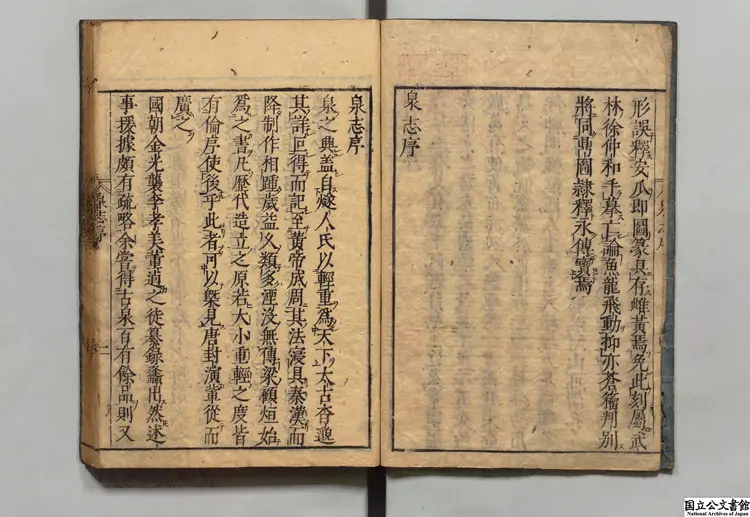 形誤釋安瓜即圖篆具存雌黃焉免此刻屬武
林徐仲和手摹亡論魚龍飛動抑亦蒼籀判別
將同鼎圖隸釋永傳寶焉
泉志序
泉志序
泉之興蓋自燧人氏以輕重爲天下太古杳邈
其詳叵得而記至黃帝成周其法寖具秦漢而
降制作相踵歲益久類多湮沒無傳梁顧烜始
爲之書凡歷代造立之原若大小重輕之度皆
有倫序使後乎此者可以槩見唐封演輩從而
廣之
國朝金光襲李孝美董逌之徒纂錄蠭出然述
事援據頗有疏略余嘗得古泉百有餘品則又
泉志序
国立公文書館
National Archives of Japan